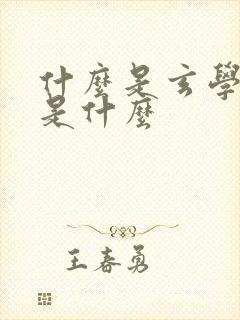 什麼是玄學
是什麼
王春勇